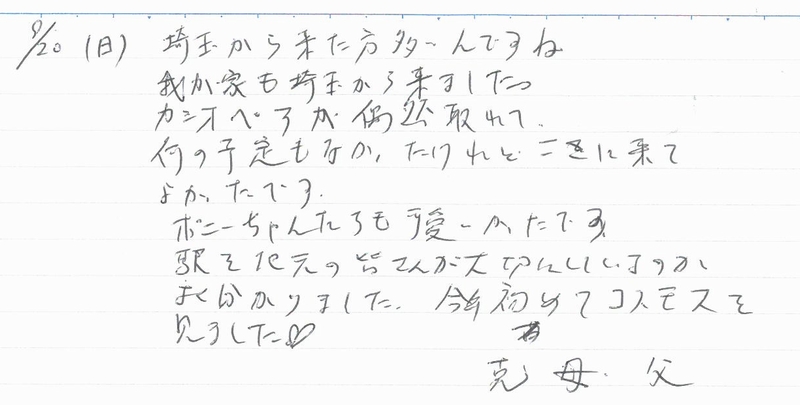 9/20（日） 埼玉から来た方多いんですね
我が家も埼玉から来ました
カシオペアが偶然取れて、
何の予定もなかったけれどここに来て
よかったです。
ポニーちゃんたちも可愛いかったです
駅を地元の皆さんが大切にしているのが
よく分かりました。今年初めてコスモスを
見ました♡
克 母. 父